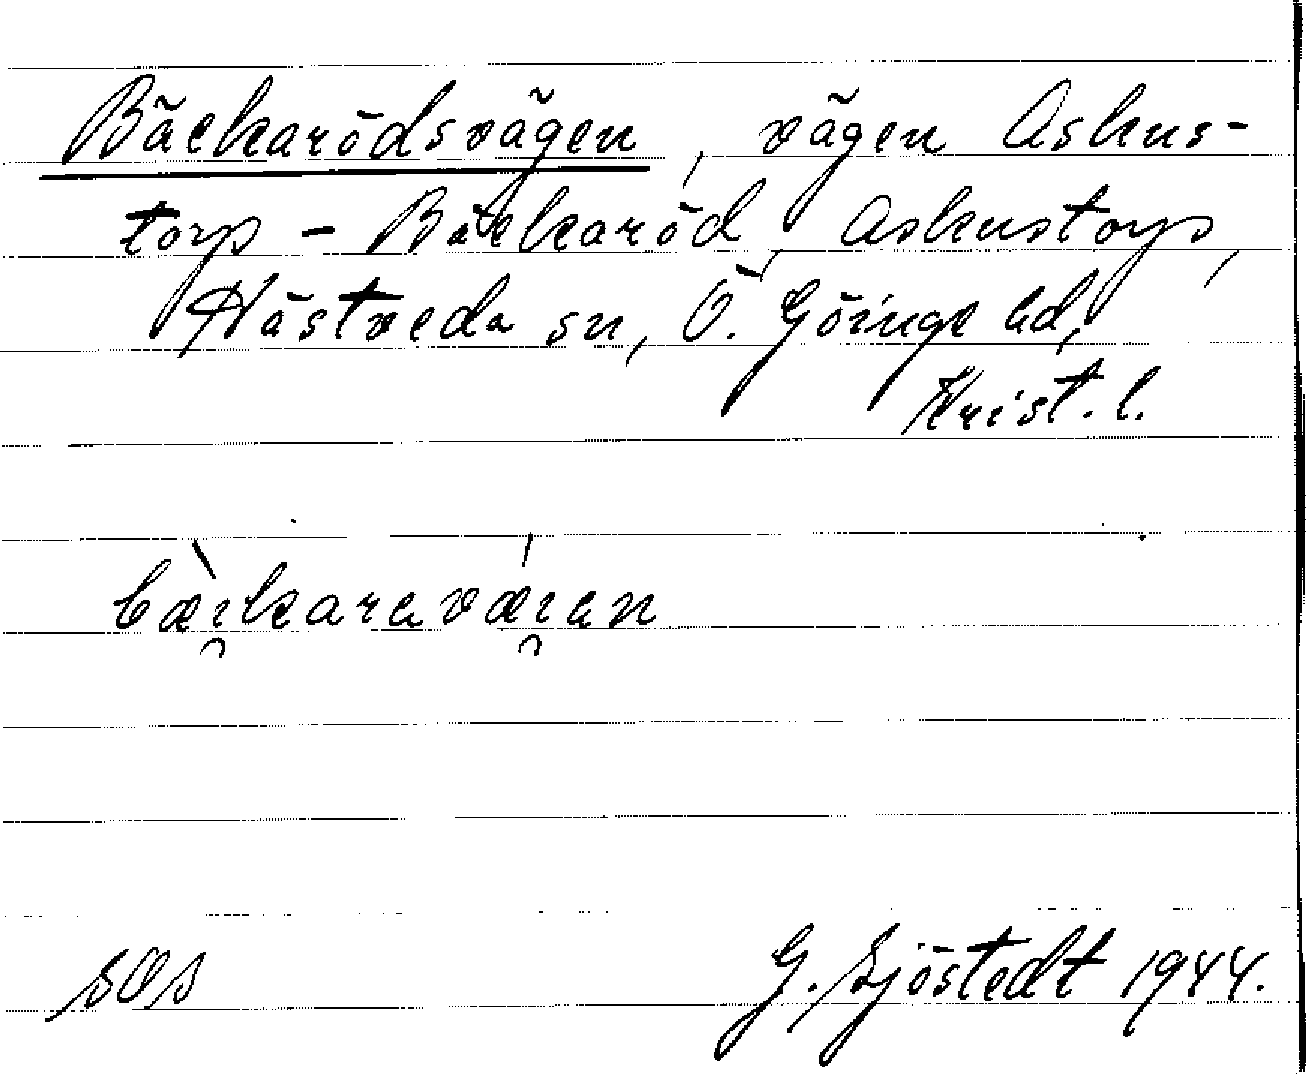 Bäckarödsvägen, vägen Askus-
torp - Bäckaröd, Askustorp,
Hästveda sn, Ö. Göinge hd,
Krist. l.
bæ̀ı̯karavǽı̯an
SOS
G. Sjöstedt 1944.